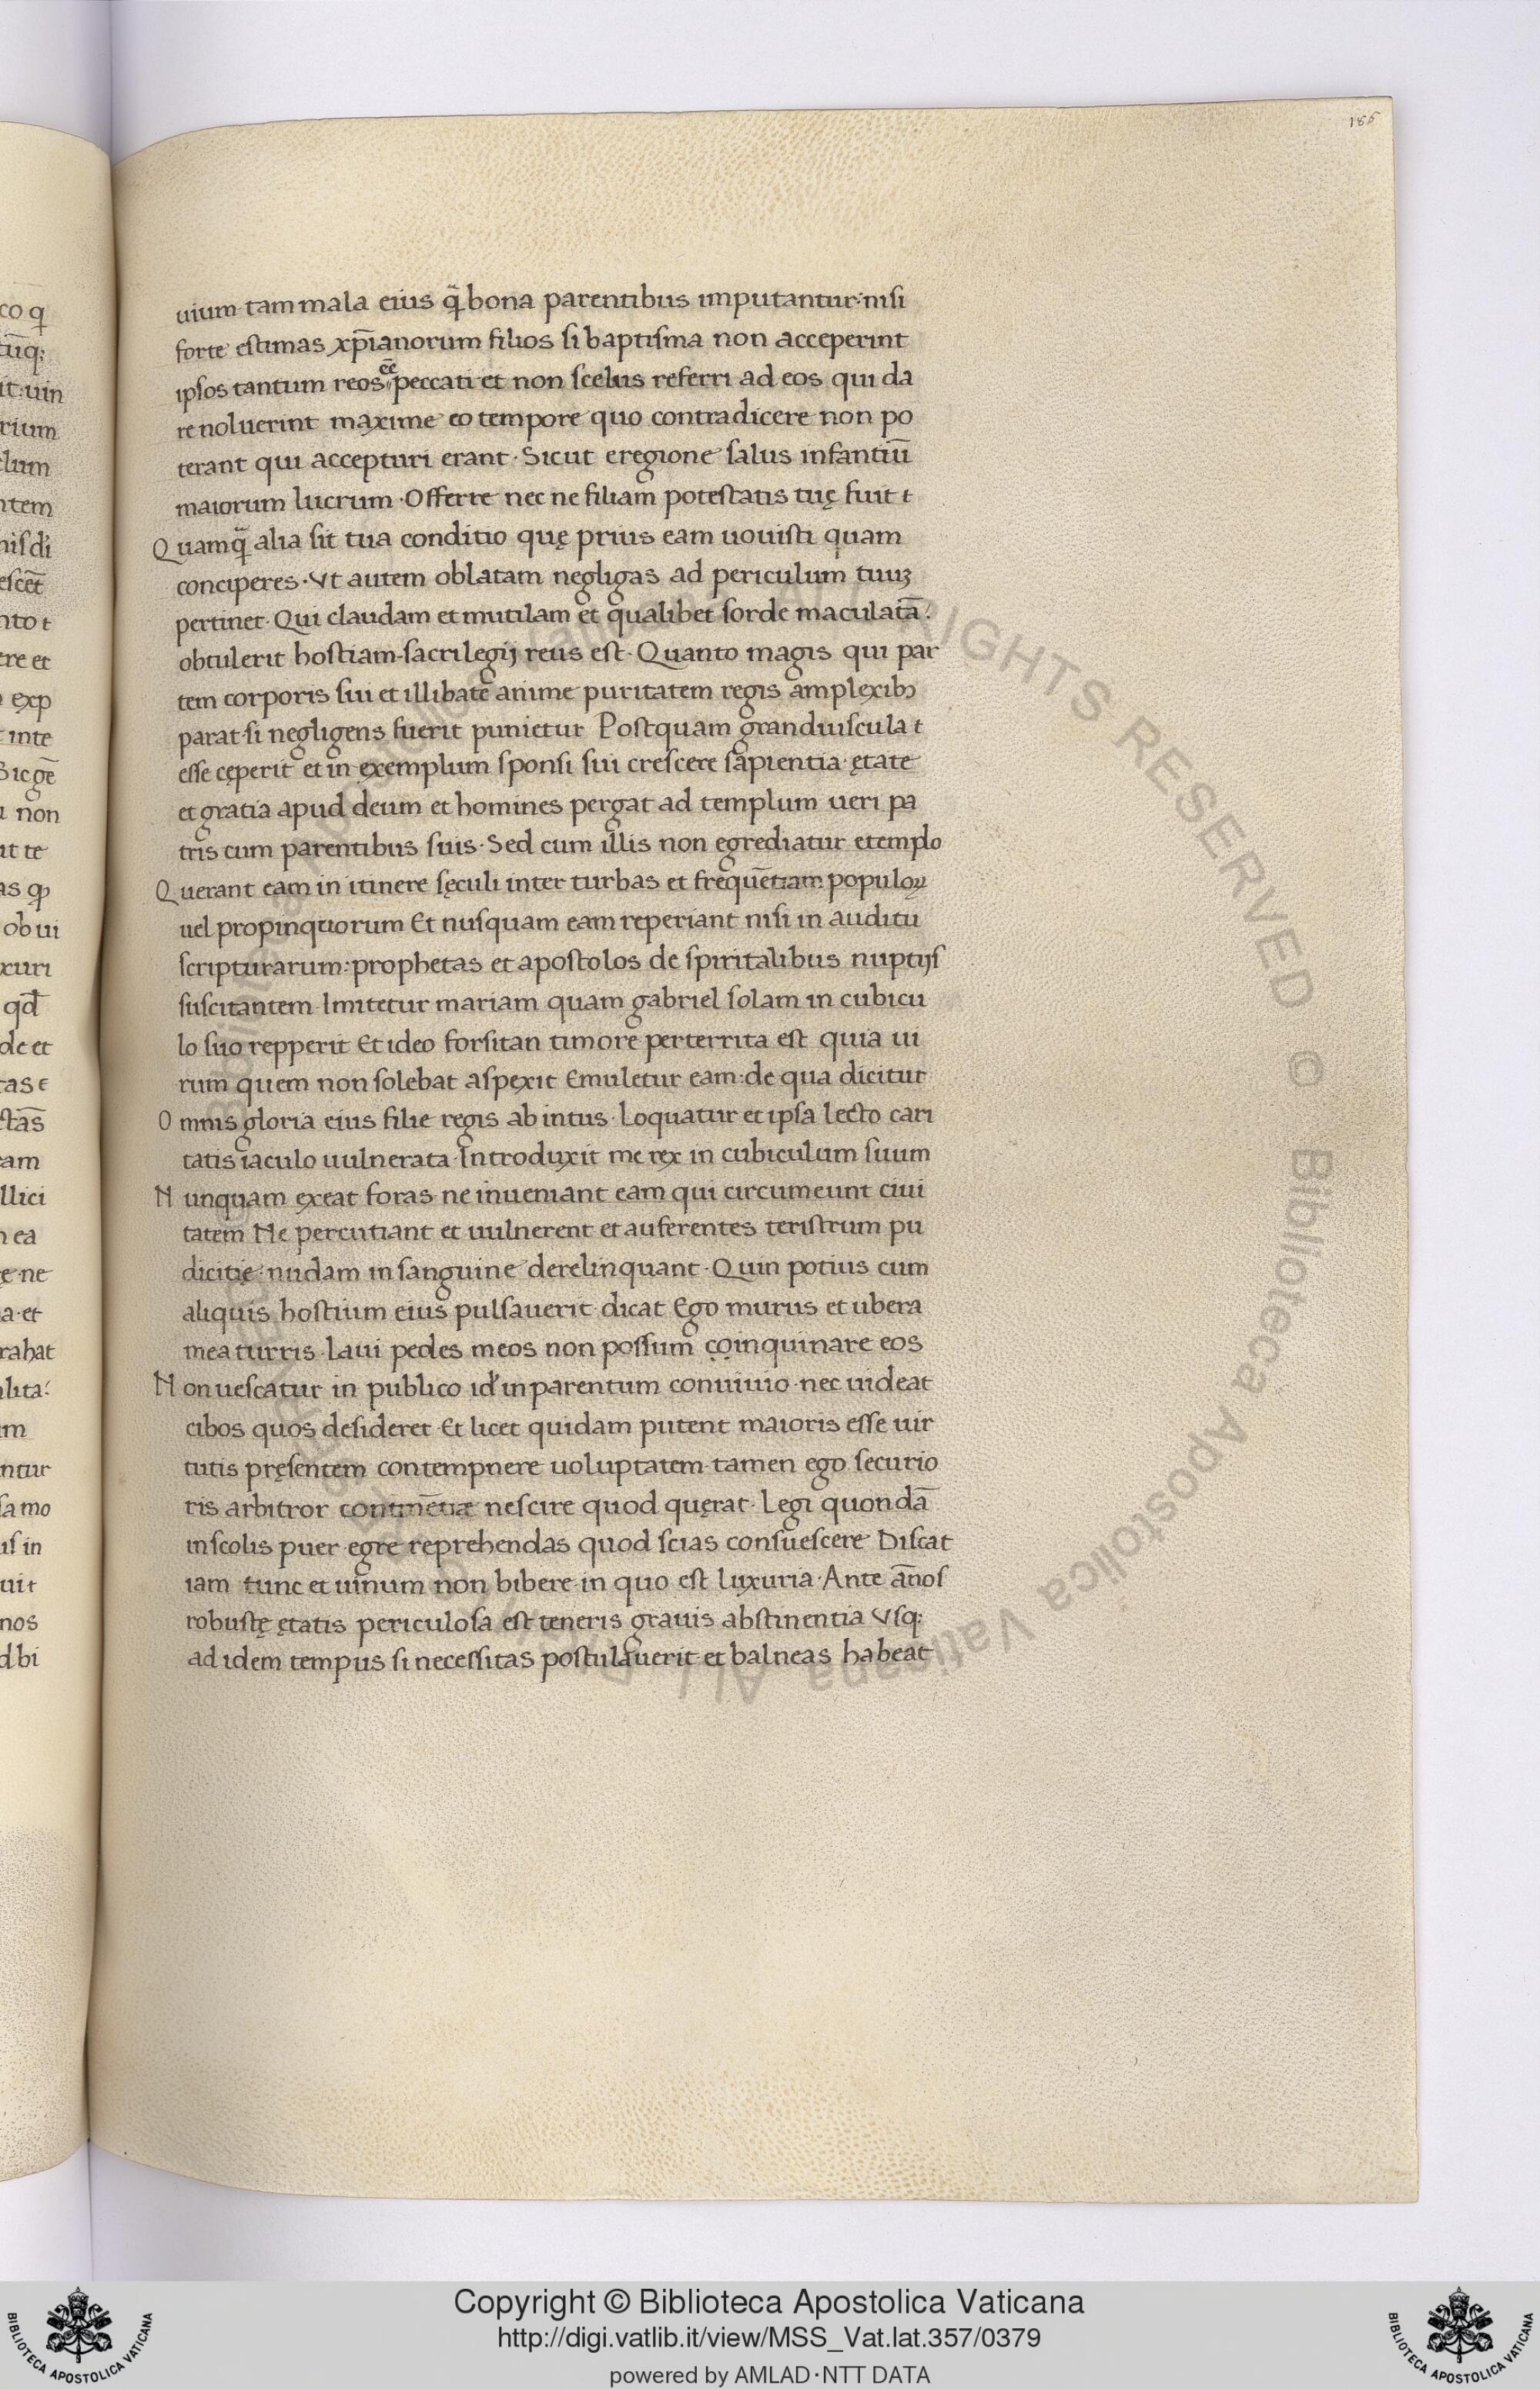 186
uium tam mala eius q̃ bona parentibus imputantur: nisi
forte estimas xp̄ianorum filios si baptisma non acceperint
ipsos tantum reos ēe peccati et non scelus referri ad eos qui da
re noluerint maxime eo tempore quo contradicere non po
terant qui accepturi erant · Sicut eregione salus infantiū
maiorum lucrum · Offerre nec ne filiam potestatis tuę fuit t
Quamq̃ alia sit tua conditio quę prius eam uouisti quam
conciperes · Vt autem oblatam negligas ad periculum tuuꝫ
pertinet · Qui claudam et mutilam et qualibet sorde maculatā:
obtulerit hostiam · sacrilegij reus est · Quanto magis qui par
tem corporis sui et illibate anime puritatem regis amplexibꝰ
parat · si negligens fuerit punietur Postquam granduiscula t
esse cęperit et in exemplum sponsi sui crescere sapientia · ętate
et gratia apud deum et homines pergat ad templum ueri pa
tris cum parentibus suis · Sed cum illis non egrediatur etemplo
Querant eam in itinere sęculi inter turbas et frequētiam populoꝝ
uel propinquorum Et nusquam eam reperiant nisi in auditu
scripturarum: prophetas et apostolos de spiritalibus nuptijs
suscitantem · Imitetur mariam quam gabriel solam in cubicu
lo suo repperit Et ideo forsitan timore perterrita est quia ui
rum quem non solebat aspexit Emuletur eam: de qua dicitur
Omnis gloria eius filie regis ab intus · Loquatur et ipsa lecto cari
tatis iaculo uulnerata · Introduxit me rex in cubiculum suum
Nunquam exeat foras ne inueniant eam qui circumeunt ciui
tatem Ne percutiant et uulnerent et auferentes teristrum pu
dicitię · nudam in sanguine derelinquant · Quin potius cum
aliquis hostium eius pulsauerit · dicat Ego murus et ubera
mea turris · Laui pedes meos non possum coinquinare eos
Non uescatur in publico id in parentum conuiuio · nec uideat
cibos quos desideret · Et licet quidam putent maioris esse uir
tutis pręsentem contempnere uoluptatem · tamen ego securio
ris arbitror continētiæ nescire quod quęrat · Legi quondā
inscolis puer · egre reprehendas quod scias consuescere Discat
iam tunc et uinum non bibere · in quo est luxuria · Ante ānos
robustę ętatis periculosa est teneris grauis abstinentia Vsq;
ad idem tempus si necessitas postulauerit et balneas habeat
Copyright © Biblioteca Apostolica Vaticana
http://digi.vatlib.it/view/MSS_Vat.lat.357/0379
powered by AMLAD·NTT DATA